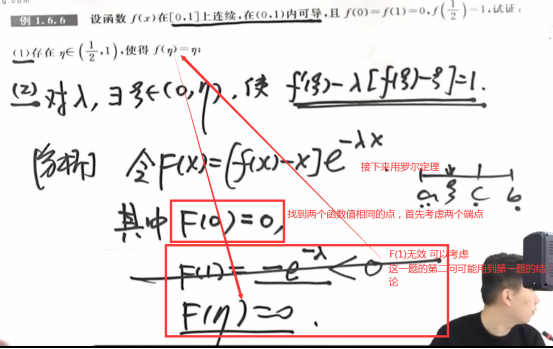 例 1.6.6 设函数 f(x)在[0,1]上连续,在(0,1)内可导,且 f(0)=f(1)=0,f(1/2)=1,试证:
(1)存在 η∈(1/2,1),使得 f(η)=η;
(2) 对λ,∃ξ∈(0,η),使 f'(ξ)-λ[f(ξ)-ξ]=1.
[分析] 令F(x)=[f(x)-x]e^{-λx}.
接下来用罗尔定理
a ξ c b
其中 F(0)=0,
找到两个函数值相同的点,首先考虑两个端点
F(1)=-e^{-λ}<0
F(1)无效 可以考虑
这一题的第二问可能用到第一题的结
论
F(η)=0.